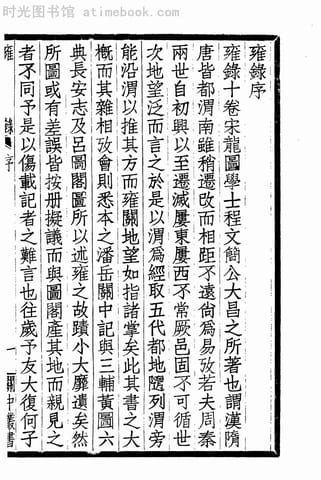 时光图书馆 atimebook.com
雍錄序
雍錄十卷宋龍圖學士程文簡公大昌之所著也謂漢隋
唐皆都渭南雖稍遷改而相距不遠尚爲易攷若夫周秦
兩世自初興以至遷滅屢東屢西不常厥邑固不可循世
次地望泛而言之於是以渭爲經取五代都地隨列渭旁
能沿渭以推其方而雍關地望如指諸掌矣此其書之大
槪而其雜相攷會則悉本之潘岳關中記與三輔黃圖六
典長安志及呂圖閣圖所以述雍之故蹟小大靡遺矣然
所圖或有差誤皆按册擬議而與圖閣產其地而親見之
者不同予是以傷載記者之難言也往歲予友大復何子
雍 錄 序 一 關中叢書